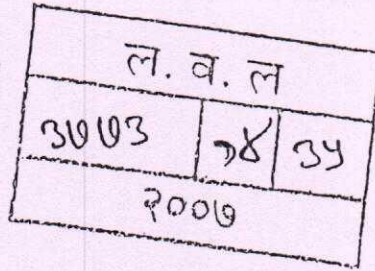 ल. व. ल
३७७३ १४ ३५
२००७